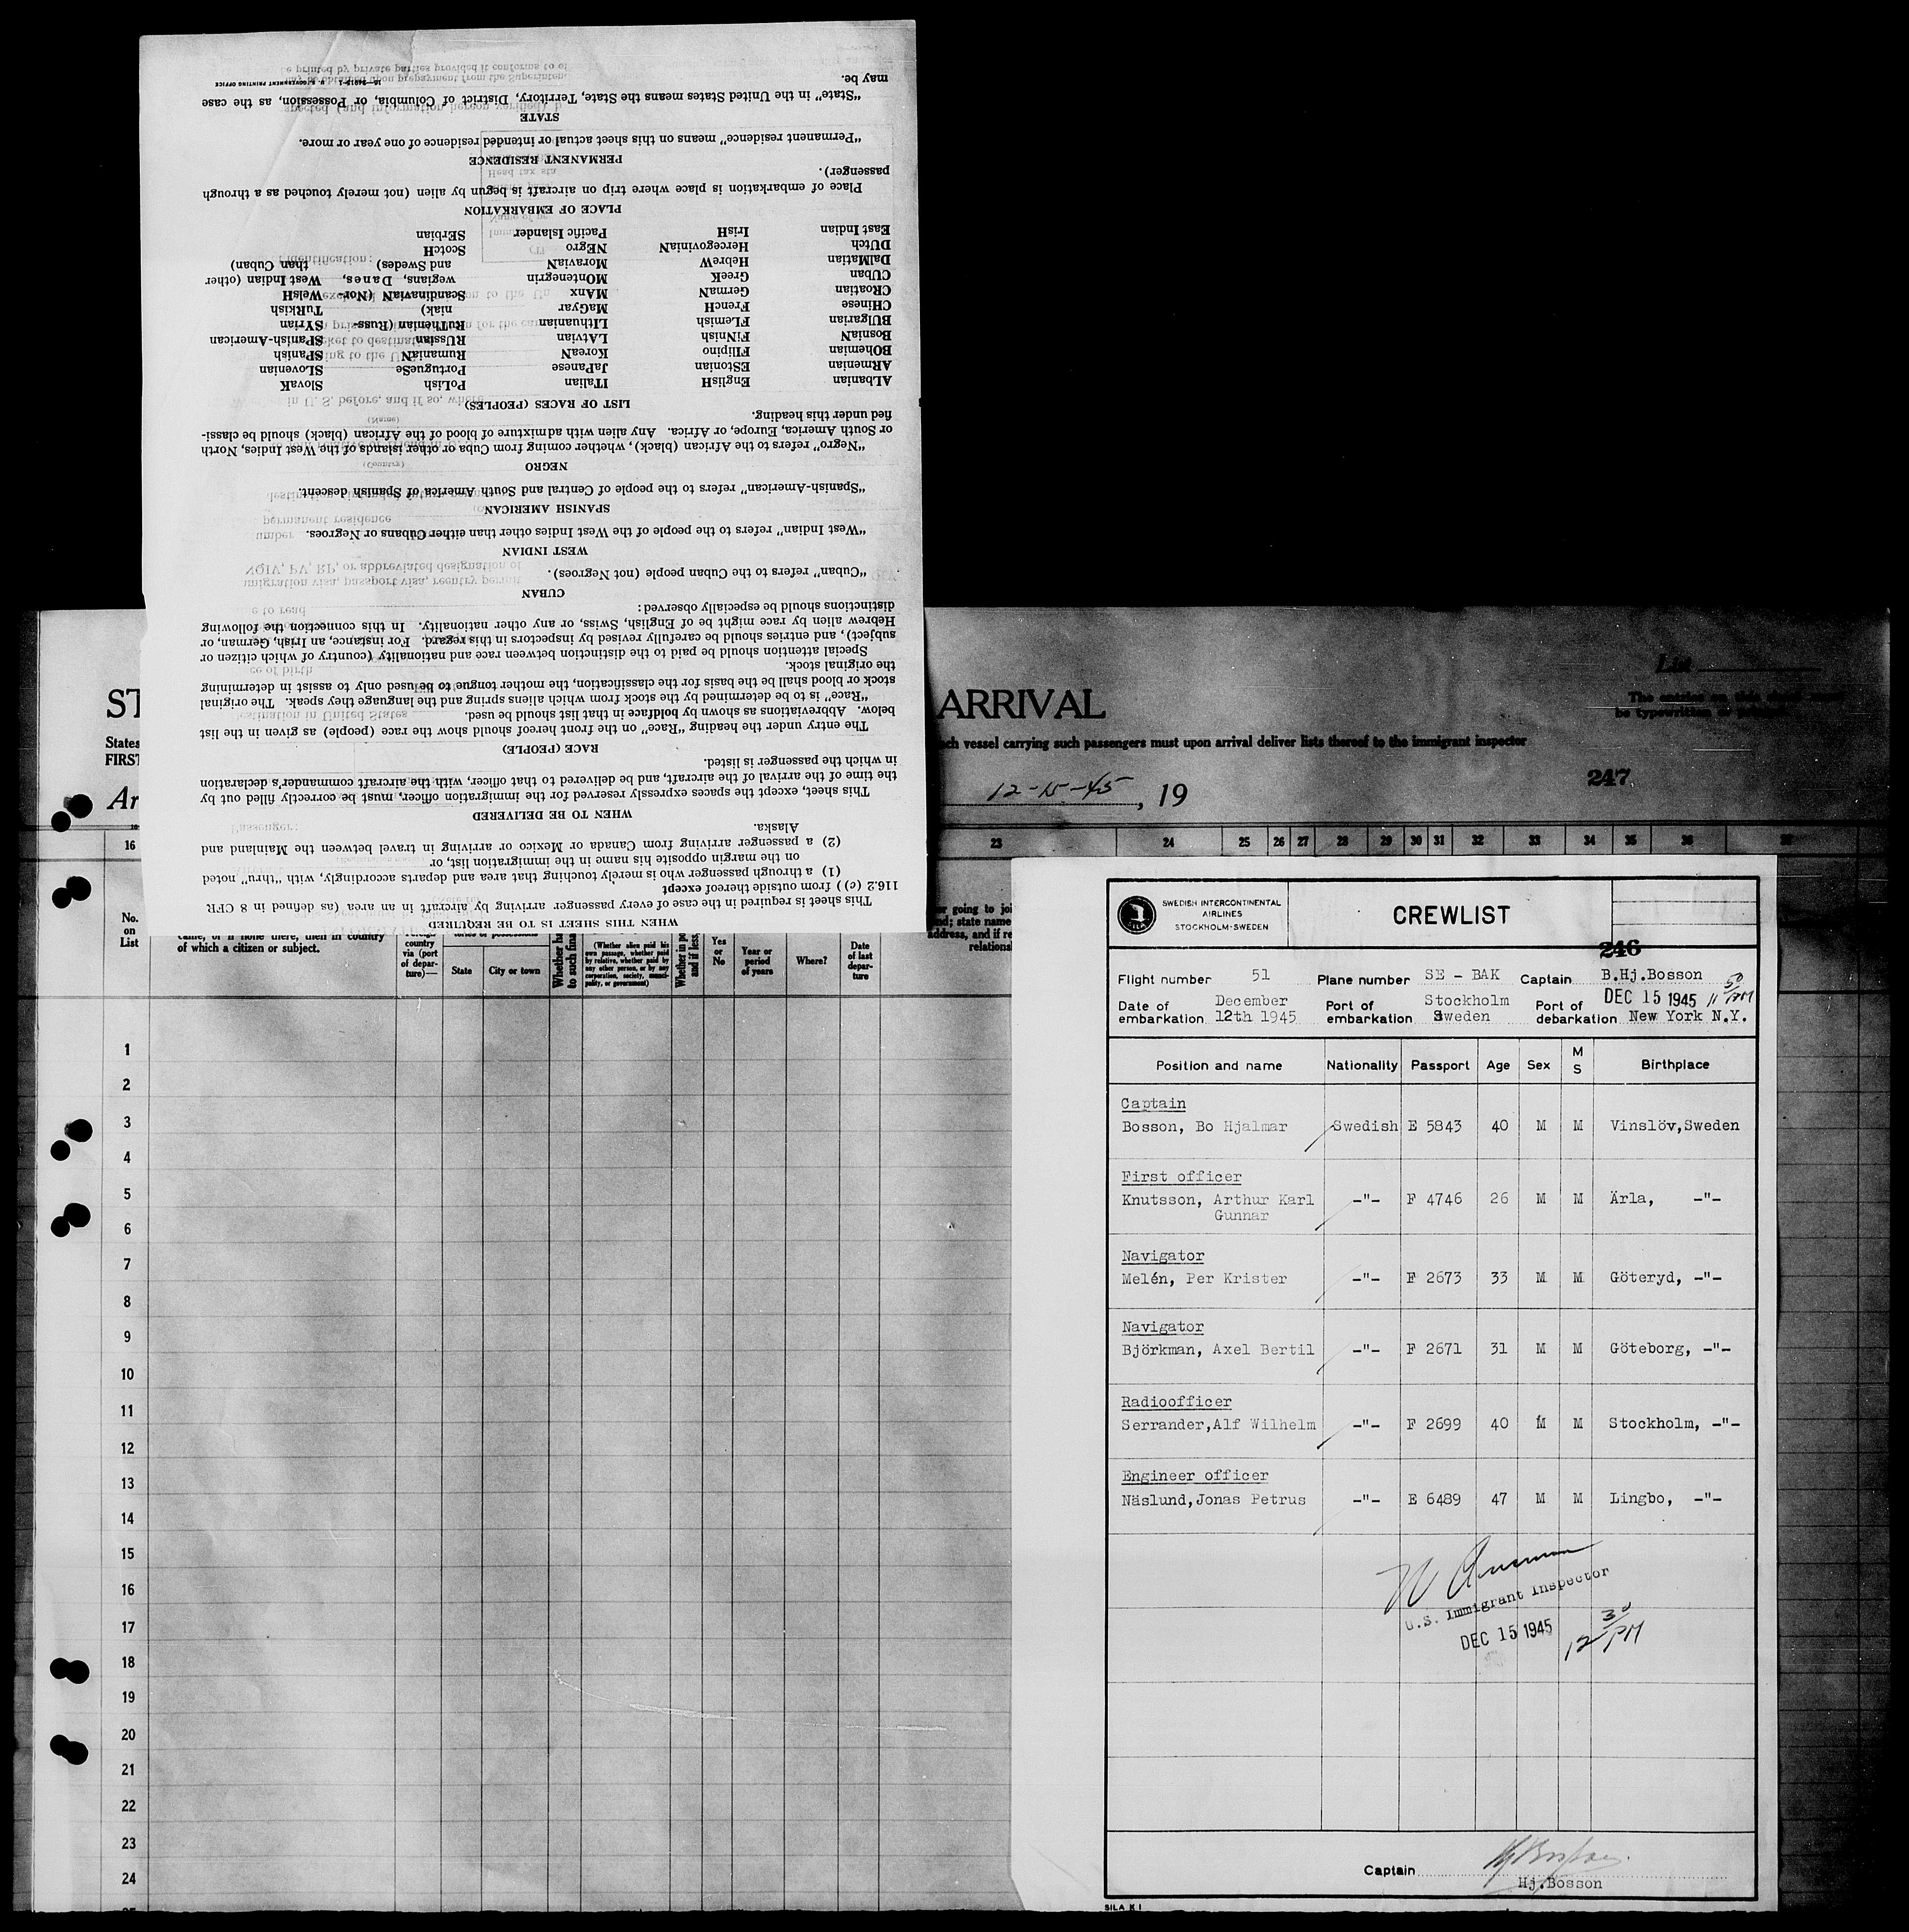 WHEN THIS SHEET IS TO BE REQUIRED
This sheet is required in the case of every passenger arriving by aircraft in an area (as defined in 8 CFR
116.2 (c)) from outside thereof except
(1) a through passenger who is merely touching that area and departs accordingly, with "thru" noted
on the margin opposite his name in the immigration list, or
(2) a passenger arriving from Canada or Mexico or arriving in travel between the Mainland and
Alaska.
WHEN TO BE DELIVERED
This sheet, except the spaces expressly reserved for the immigration officer, must be correctly filled out by
the time of the arrival of the aircraft, and be delivered to that officer, with the aircraft commander's declaration
in which the passenger is listed.
RACE (PEOPLE)
The entry under the heading "Race" on the front hereof should show the race (people) as given in the list
below. Abbreviations as shown by boldface in that list should be used.
"Race" is to be determined by the stock from which aliens spring and the language they speak. The original
stock or blood shall be the basis for the classification, the mother tongue to be used only to assist in determining
the original stock.
Special attention should be paid to the distinction between race and nationality (country of which citizen or
subject), and entries should be carefully revised by inspectors in this regard. For instance, an Irish, German, or
Hebrew alien by race might be of English, Swiss, or any other nationality. In this connection the following
distinctions should be especially observed:
CUBAN
"Cuban" refers to the Cuban people (not Negroes).
WEST INDIAN
"West Indian" refers to the people of the West Indies other than either Cubans or Negroes.
SPANISH AMERICAN
"Spanish-American" refers to the people of Central and South America of Spanish descent.
NEGRO
"Negro" refers to the African (black), whether coming from Cuba or other islands of the West Indies, North
or South America, Europe, or Africa. Any alien with admixture of blood of the African (black) should be classi-
fied under this heading.
LIST OF RACES (PEOPLES)
ALbanian EnglisH ITalian PoLish SlovaK
ARmenian EStonian JaPanese PortugueSe SLovenian
BOhemian FIlipino KoreaN RumaniaN SPanish
BosniaN FiNnish LAtvian RUssian SPanish-American
BUlgarian FLemish LIthuanian RuTHenian (Russ- SYrian
CHinese FrencH MaGyar niak) TuRkish
CRoatian GermaN MAnx ScandinaviaN (Nor- WelsH
CUban GreeK MOntenegrin wegians, Danes, West Indian (other
DalMatian HebreW MoraviaN and Swedes) than Cuban)
DUtch HercegoviniaN NEgro ScotcH
East Indian IrisH Pacific Islander SErbian
PLACE OF EMBARKATION
Place of embarkation is place where trip on aircraft is begun by alien (not merely touched as a through
passenger).
PERMANENT RESIDENCE
"Permanent residence" means on this sheet actual or intended residence of one year or more.
STATE
"State" in the United States means the State, Territory, District of Columbia, or Possession, as the case
may be.
ST
ARRIVAL
List
States
ch vessel carrying such passengers must upon arrival deliver lists thereof to the immigrant inspector
FIRST
Ar
12-15-45, 19
247
16 23 24 25 26 27 28 29 30 31 32 33 34 35 36
No.
on
List
of which a citizen or subject.
country
via (port
of depar-
ture)—
State
City or town
Whether ha
to such fina
(Whether alien paid his
own passage, whether paid
by relative, whether paid by
any other person, or by any
corporation, society, munici-
pality, or government)
Whether in po
and if less,
Yes
or
No
Year or
period
of years
Where?
Date
of last
depar-
ture
1
2
3
4
5
6
7
8
9
10
11
12
13
14
15
16
17
18
19
20
21
22
23
24
SWEDISH INTERCONTINENTAL
AIRLINES
STOCKHOLM-SWEDEN
CREWLIST
246
Flight number 51 Plane number SE - BAK Captain B.Hj.Bosson
DEC 15 1945 11 50 PM
Date of embarkation December 12th 1945 Port of embarkation Stockholm Sweden Port of debarkation New York N.Y.
Position and name Nationality Passport Age Sex M S Birthplace
Captain
Bosson, Bo Hjalmar Swedish E 5843 40 M M Vinslöv,Sweden
First officer
Knutsson, Arthur Karl -"- F 4746 26 M M Ärla, -"-
Gunnar
Navigator
Melén, Per Krister -"- F 2673 33 M M Göteryd, -"-
Navigator
Björkman, Axel Bertil -"- F 2671 31 M M Göteborg, -"-
Radioofficer
Serrander,Alf Wilhelm -"- F 2699 40 M M Stockholm, -"-
Engineer officer
Näslund,Jonas Petrus -"- E 6489 47 M M Lingbo, -"-
U.S. Immigrant Inspector
DEC 15 1945 12 30 PM
Captain Hj.Bosson
SILA K 1